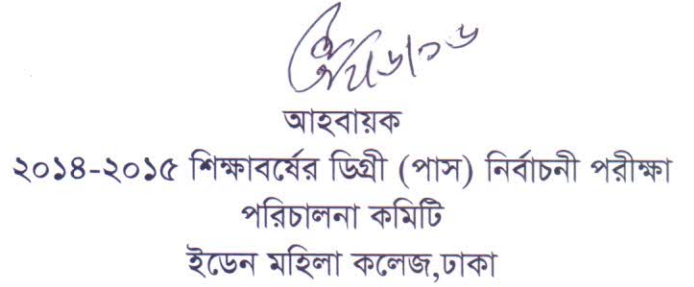 আহবায়ক
২০১৪-২০১৫ শিক্ষাবর্ষের ডিগ্রী (পাস) নির্বাচনী পরীক্ষা
পরিচালনা কমিটি
ইডেন মহিলা কলেজ,ঢাকা